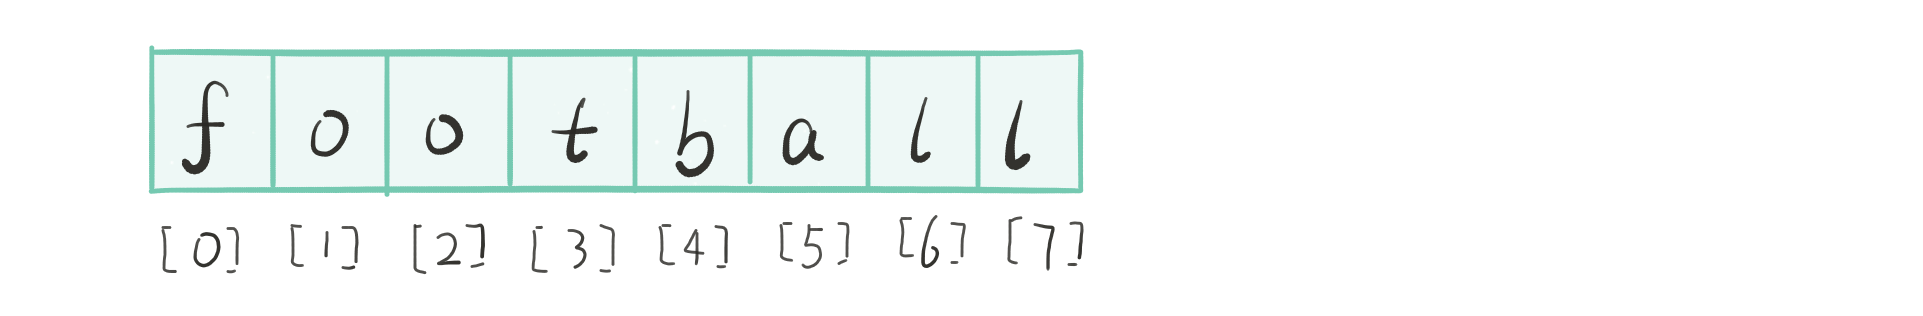 f o o t b a l l
[0] [1] [2] [3] [4] [5] [6] [7]